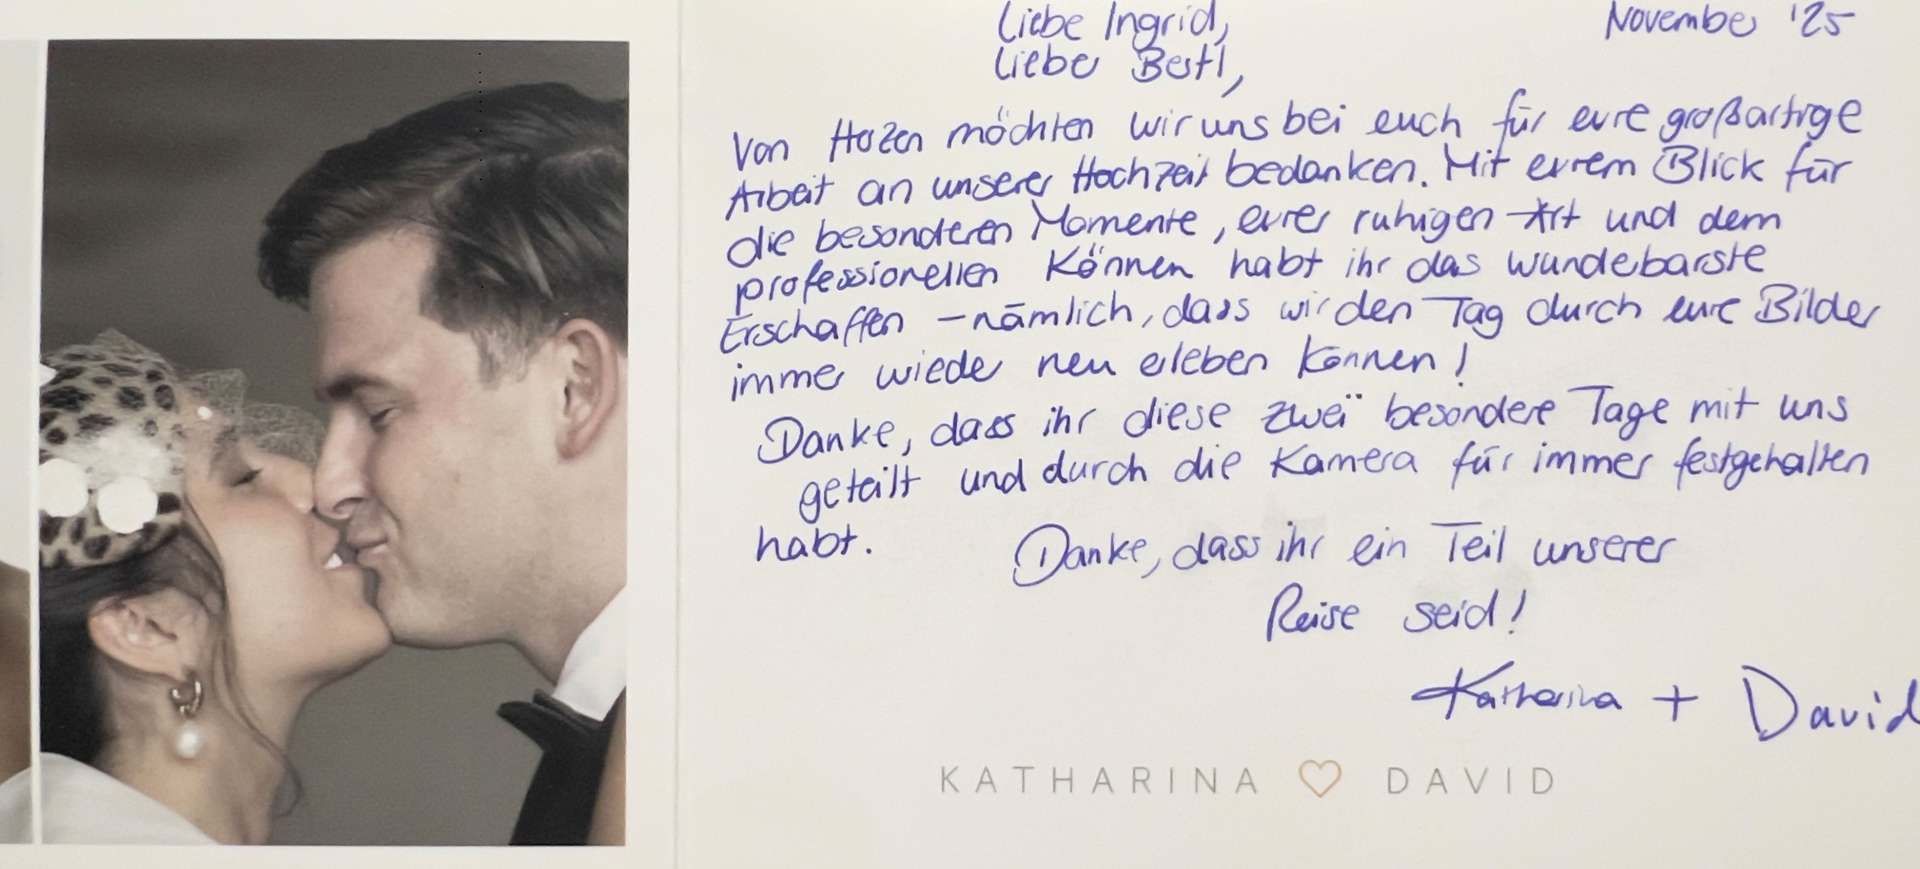 Liebe Ingrid,
November '25
Liebe Bertl,
Von Herzen möchten wir uns bei euch für eure großartige
Arbeit an unserer Hochzeit bedanken. Mit eurem Blick für
die besonderen Momente, eurer ruhigen Art und dem
professionellen Können habt ihr das wundebarste
Erschaffen – nämlich, dass wir den Tag durch eure Bilder
immer wieder neu erleben können!
Danke, dass ihr diese zwei besondere Tage mit uns
geteilt und durch die Kamera für immer festgehalten
habt.
Danke, dass ihr ein Teil unserer
Reise seid!
Katharina + David
KATHARINA ♡ DAVID